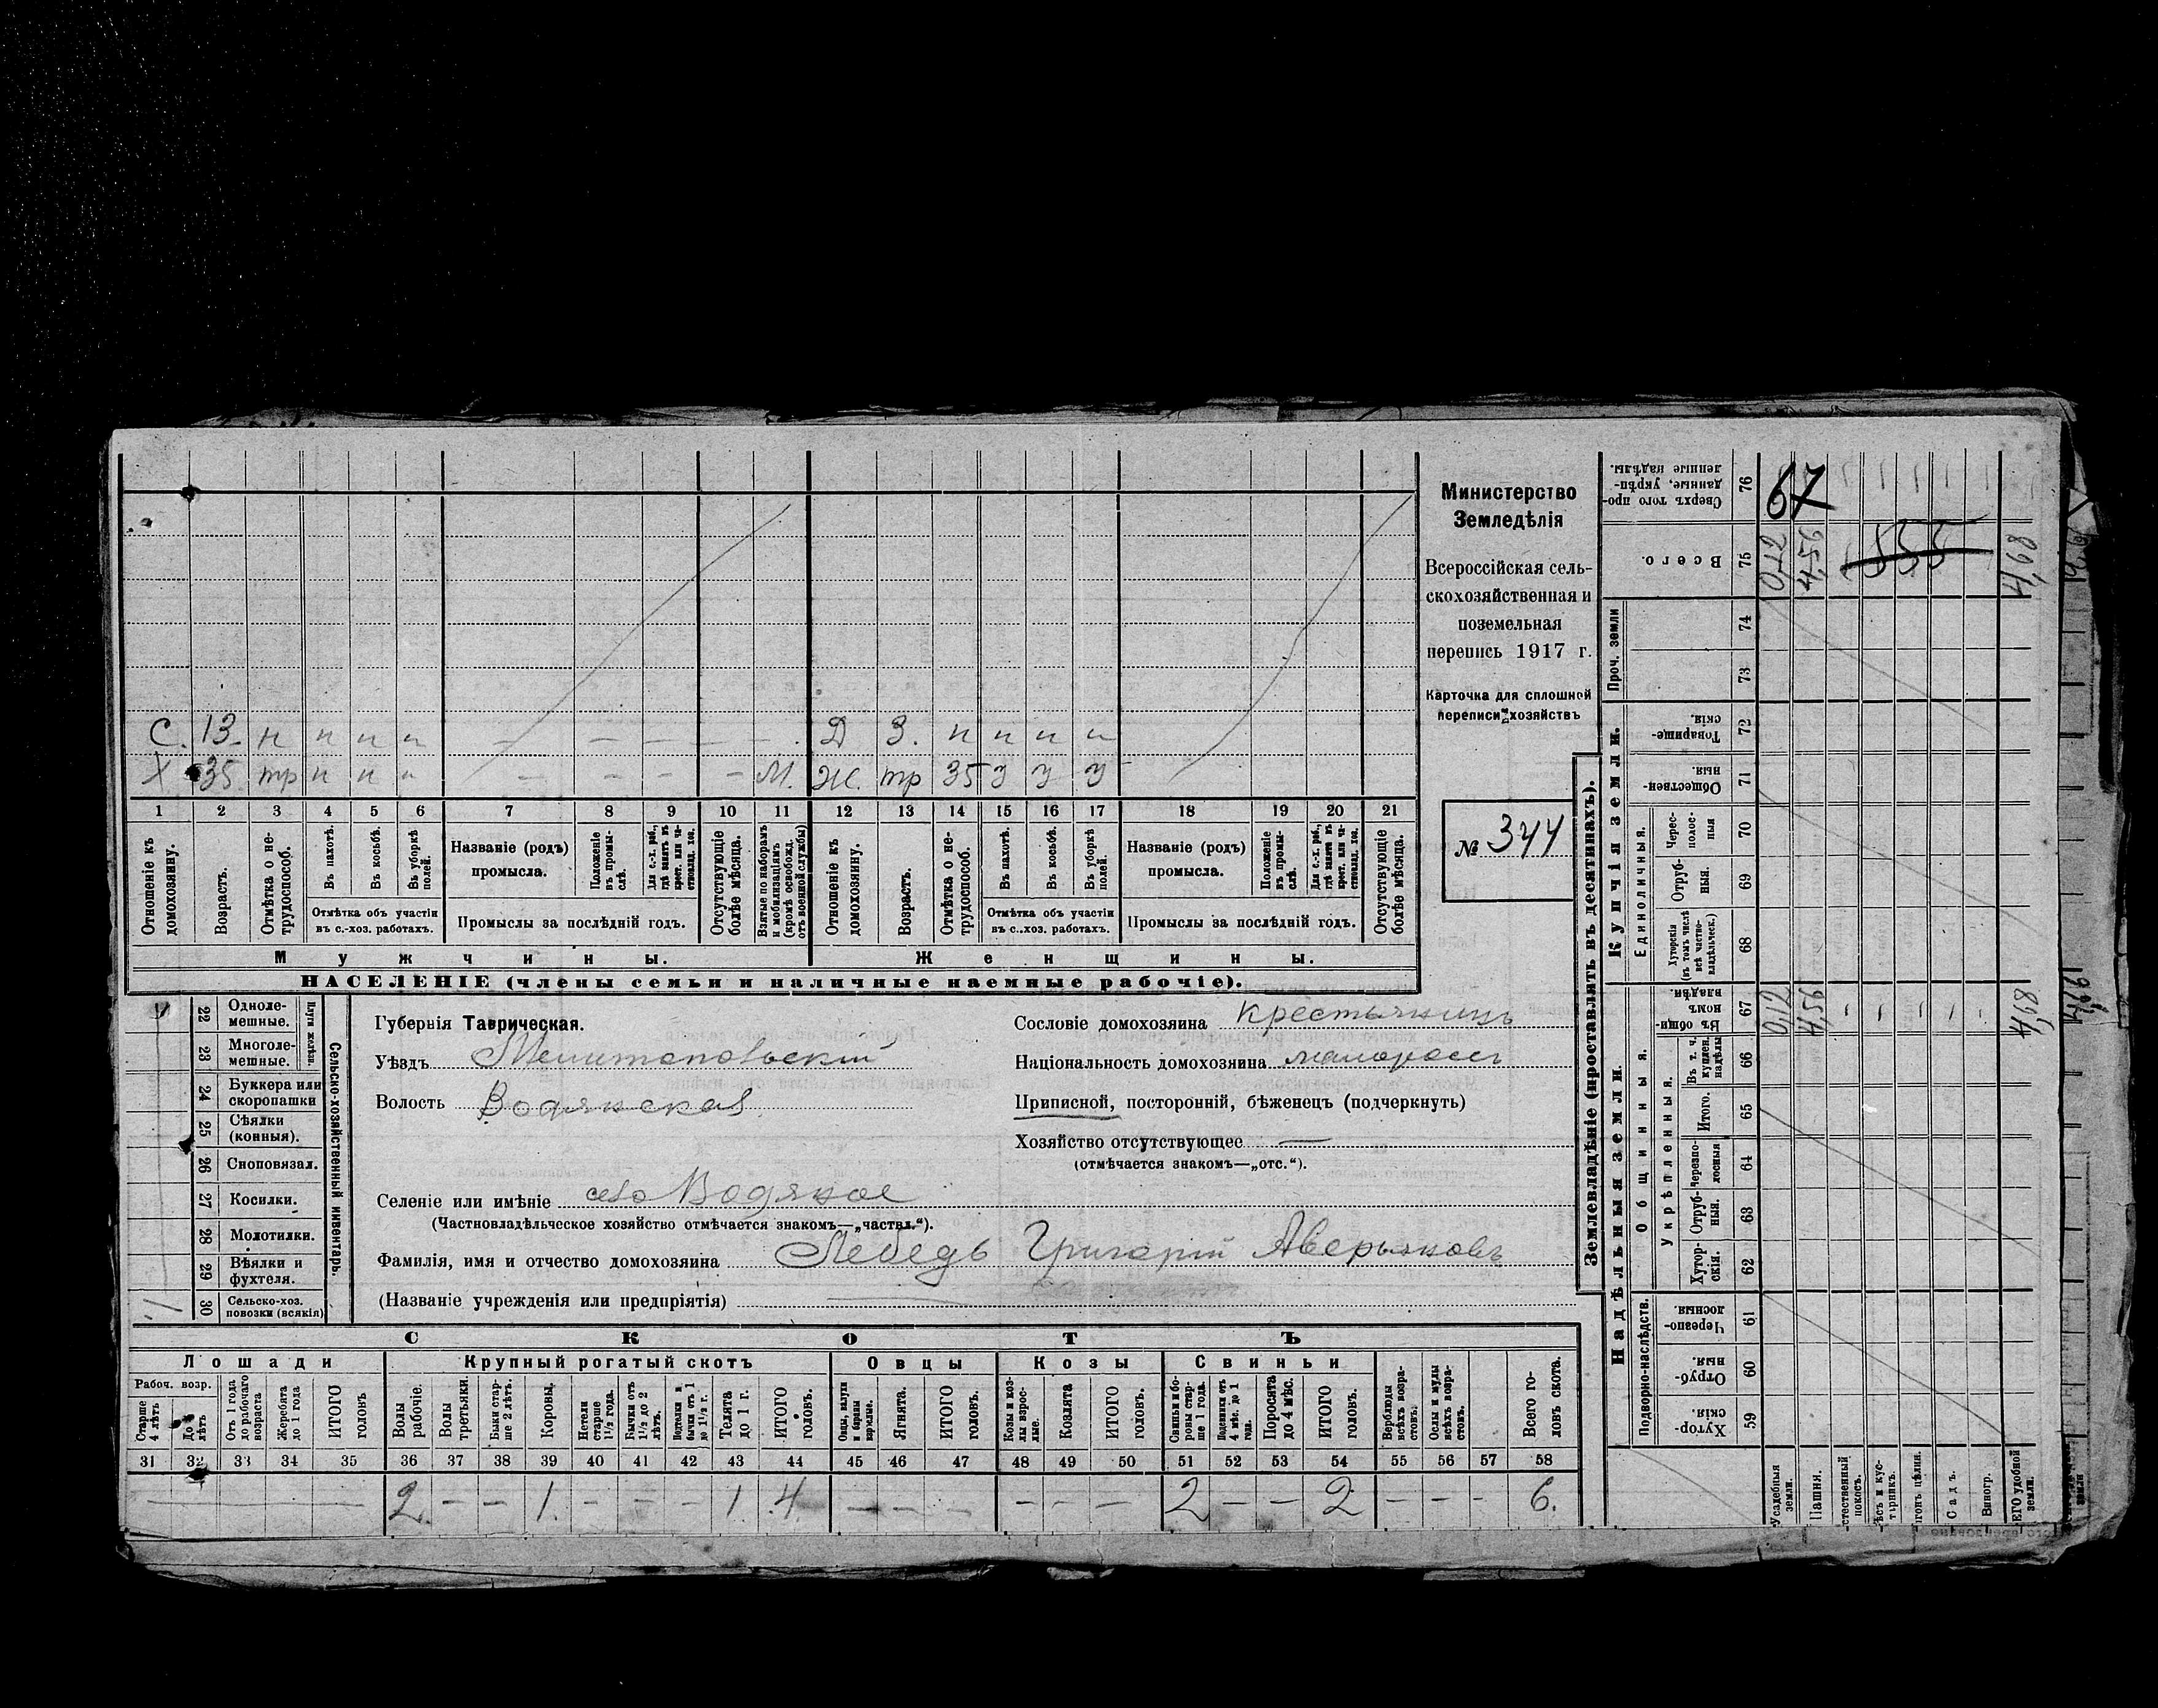 Министерство
Земледѣлія
Всероссійская сель-
скохозяйственная и
поземельная
перепись 1917 г.
Карточка для сплошной
переписи хозяйствъ
№ 344
С. 13. н н н н — — — — — Д 3. н н н н
Х 35 тр н н н — — — — М. Ж. тр 35 У У У
1 2 3 4 5 6 7 8 9 10 11 12 13 14 15 16 17 18 19 20 21
Отношеніе къ домохозяину.
Возрастъ.
Отмѣтка о не-трудоспособ.
Въ пахотѣ.
Въ косьбѣ.
Въ уборкѣ полей.
Отмѣтка объ участіи
въ с.-хоз. работахъ.
Названіе (родъ)
промысла.
Положеніе въ промы-слѣ.
Для с.-х. раб., гдѣ занятъ въ крест. или ча-стновлад. хоз.
Промыслы за послѣдній годъ.
Отсутствующіе болѣе мѣсяца.
Взятые по наборамъ и мобилизаціямъ (кромѣ освобожд. отъ военной службы)
Отношеніе къ домохозяину.
Возрастъ.
Отмѣтка о не-трудоспособ.
Въ пахотѣ.
Въ косьбѣ.
Въ уборкѣ полей.
Отмѣтка объ участіи
въ с.-хоз. работахъ.
Названіе (родъ)
промысла.
Положеніе въ промы-слѣ.
Для с.-х. раб., гдѣ занятъ въ крест. или ча-стновлад. хоз.
Промыслы за послѣдній годъ.
Отсутствующіе болѣе мѣсяца.
Мужчины.
Женщины.
НАСЕЛЕНІЕ (члены семьи и наличные наемные рабочіе).
Губернія Таврическая.
Уѣздъ Мелитопольскій
Волость Водянская
Селеніе или имѣніе село Водяное
(Частновладѣльческое хозяйство отмѣчается знакомъ—„частвл.“).
Фамилія, имя и отчество домохозяина Лебедь Григорій Аверьяновъ
(Названіе учрежденія или предпріятія)
Сословіе домохозяина Крестьянинъ
Національность домохозяина малороссъ
Приписной, посторонній, бѣженецъ (подчеркнуть)
Хозяйство отсутствующее —
(отмѣчается знакомъ—„отс.“).
Сельско-хозяйственный инвентарь.
Плуги желѣз.
22 Одноле-мешные.
23 Многоле-мешные.
24 Буккера или скоропашки
25 Сѣялки (конныя).
26 Сноповязал.
27 Косилки.
28 Молотилки.
29 Вѣялки и фухтеля.
30 Сельско-хоз. повозки (всякія) 1
СКОТЪ
Лошади
Крупный рогатый скотъ
Овцы
Козы
Свиньи
Рабоч. возр.
Старше 4 лѣтъ
До лѣтъ
Отъ 1 года до рабочаго возраста
Жеребята до 1 года
ИТОГО головъ
Волы рабочіе.
Волы третьяки.
Быки стар-ше 2 лѣтъ.
Коровы.
Нетели старше 1½ года.
Бычки отъ 1½ до 2 лѣтъ.
Подтелки и бычки отъ 1 до 1½ г.
Телята до 1 г.
ИТОГО головъ.
Овцы, валухи и бараны взрослые.
Ягнята.
ИТОГО головъ.
Козы и коз-лы взрос-лые.
Козлята
ИТОГО головъ.
Свиньи и бо-ровы стар-ше 1 года.
Подсвинки отъ 4 мѣс. до 1 года.
Поросята до 4 мѣс.
ИТОГО головъ.
Верблюды всѣхъ возра-стовъ.
Ослы и мулы всѣхъ возра-стовъ.
Всего го-ловъ скота.
31 32 33 34 35 36 37 38 39 40 41 42 43 44 45 46 47 48 49 50 51 52 53 54 55 56 57 58
2. — — 1. — — — 1. 4. — — — — — — 2 — — 2 — — — 6.
Землевладѣніе (проставлять въ десятинахъ).
Надѣльныя земли.
Купчія земли.
Проч. земли
Подворно-наслѣдств.
Общинныя.
Укрѣпленныя.
Единоличныя.
Сверхъ того про-данные, укрѣп-ленные надѣлы. 76 67
Всего. 75 0,12 4,56 555 4,68
74
73
Товарище-скія. 72
Обществен-ныя. 71
Черес-полос-ныя 70
Отруб-ныя. 69
Хуторскія (въ томъ числѣ всѣ частно-владѣльческ.) 68
Въ общин-номъ владѣн. 67 0,12 4,56 4,68
Въ т. ч. куплен. надѣлы 66
Итого. 65
Черезпо-лосныя 64
Отруб-ныя. 63
Хутор-скія. 62
Черезпо-лосныя. 61
Отруб-ныя. 60
Хутор-скія. 59
Усадебныя земли.
Пашня.
Садъ.
Виногр.